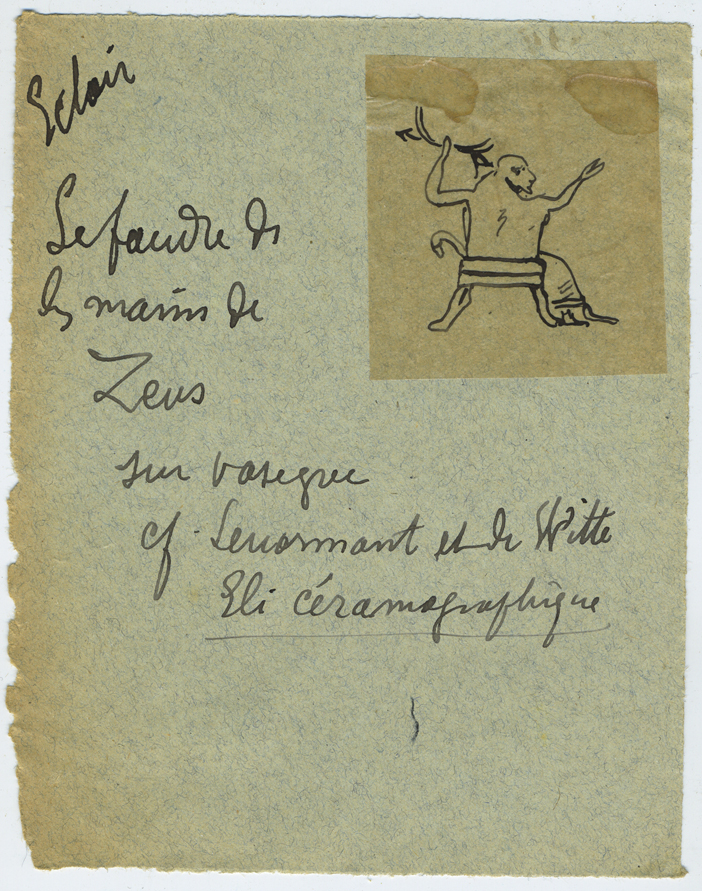 Eclair
Le foudre ds
les mains de
Zeus
sur vase grec
cf. Lenormant et de Witte
Eli céramographique